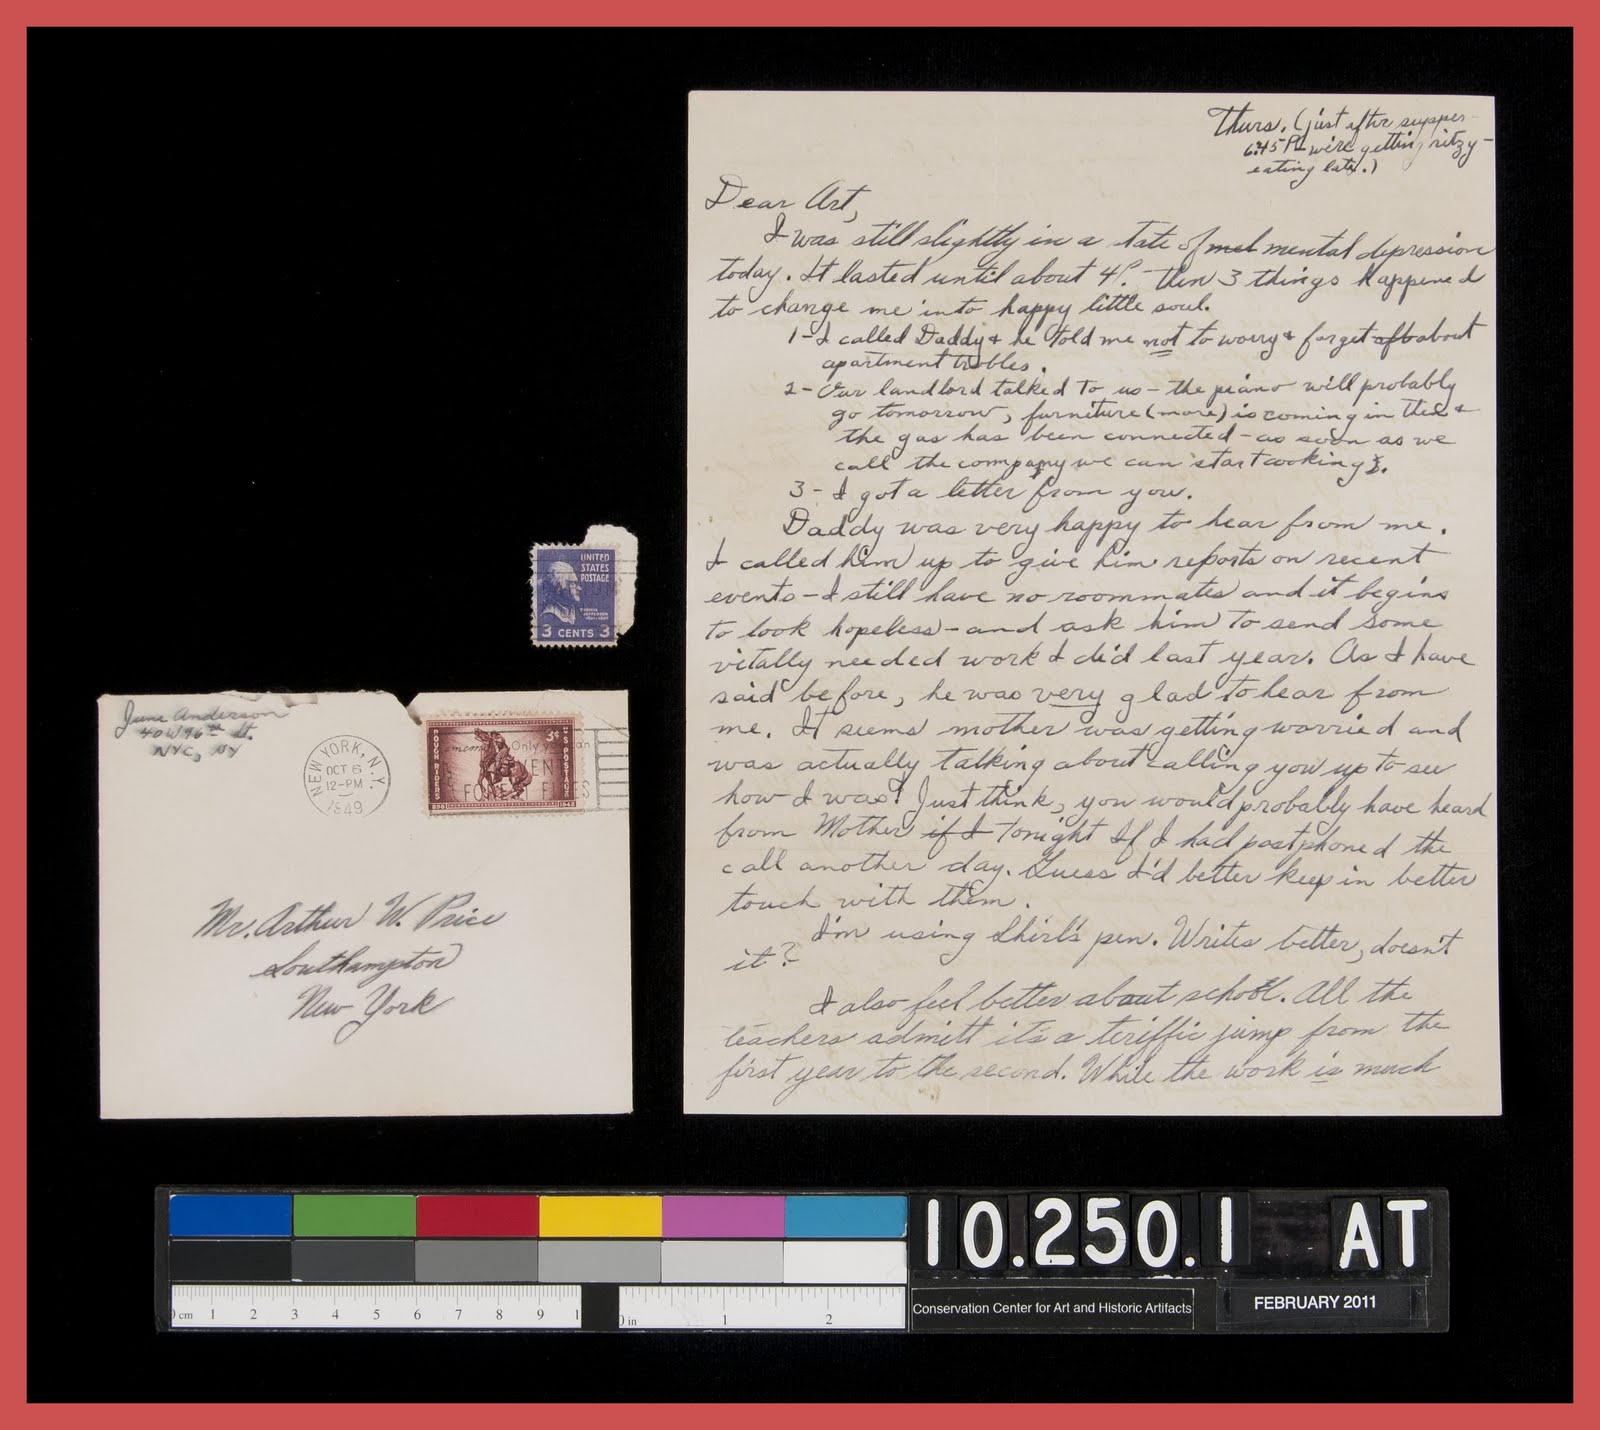 Thurs. (just after supper-
6:45 P. we're getting ritzy-
eating late.)
Dear Art,
I was still slightly in a state of mel mental depression
today. It lasted until about 4P. - then 3 things happened
to change me into happy little soul.
1-I called Daddy & he told me not to worry & forget aftb about
apartment trobles.
2- Our landlord talked to us - the piano will probably
go tomorrow, furniture (more) is coming in Wed &
the gas has been connected - as soon as we
call the company we can start cooking.
3- I got a letter from you.
Daddy was very happy to hear from me.
I called him up to give him reports on recent
events - I still have no roommates and it begins
to look hopeless - and ask him to send some
vitally needed work I did last year. As I have
said before, he was very glad to hear from
me. It seems mother was getting worried and
was actually talking about calling you up to see
how I was! Just think, you would probably have heard
from Mother if I tonight If I had postphoned the
call another day. Guess I'd better keep in better
touch with them.
I'm using Shirl's pen. Writes better, doesn't
it?
I also feel better about school. All the
teachers admitt it's a teriffic jump from the
first year to the second. While the work is much
UNITED
STATES
POSTAGE
THOMAS
JEFFERSON
3 CENTS 3
June Anderson
40 W 96th St.
NYC, NY
NEW YORK, N.Y.
OCT 6
12-PM
1949
ROUGH RIDERS
3¢
U S POSTAGE
1898 1948
Only you can
PREVENT
FOREST FIRES
Mr. Arthur W. Price
Southampton
New York
10.250.1 AT
0 cm 1 2 3 4 5 6 7 8 9 1
0 in 1 2
Conservation Center for Art and Historic Artifacts
FEBRUARY 2011